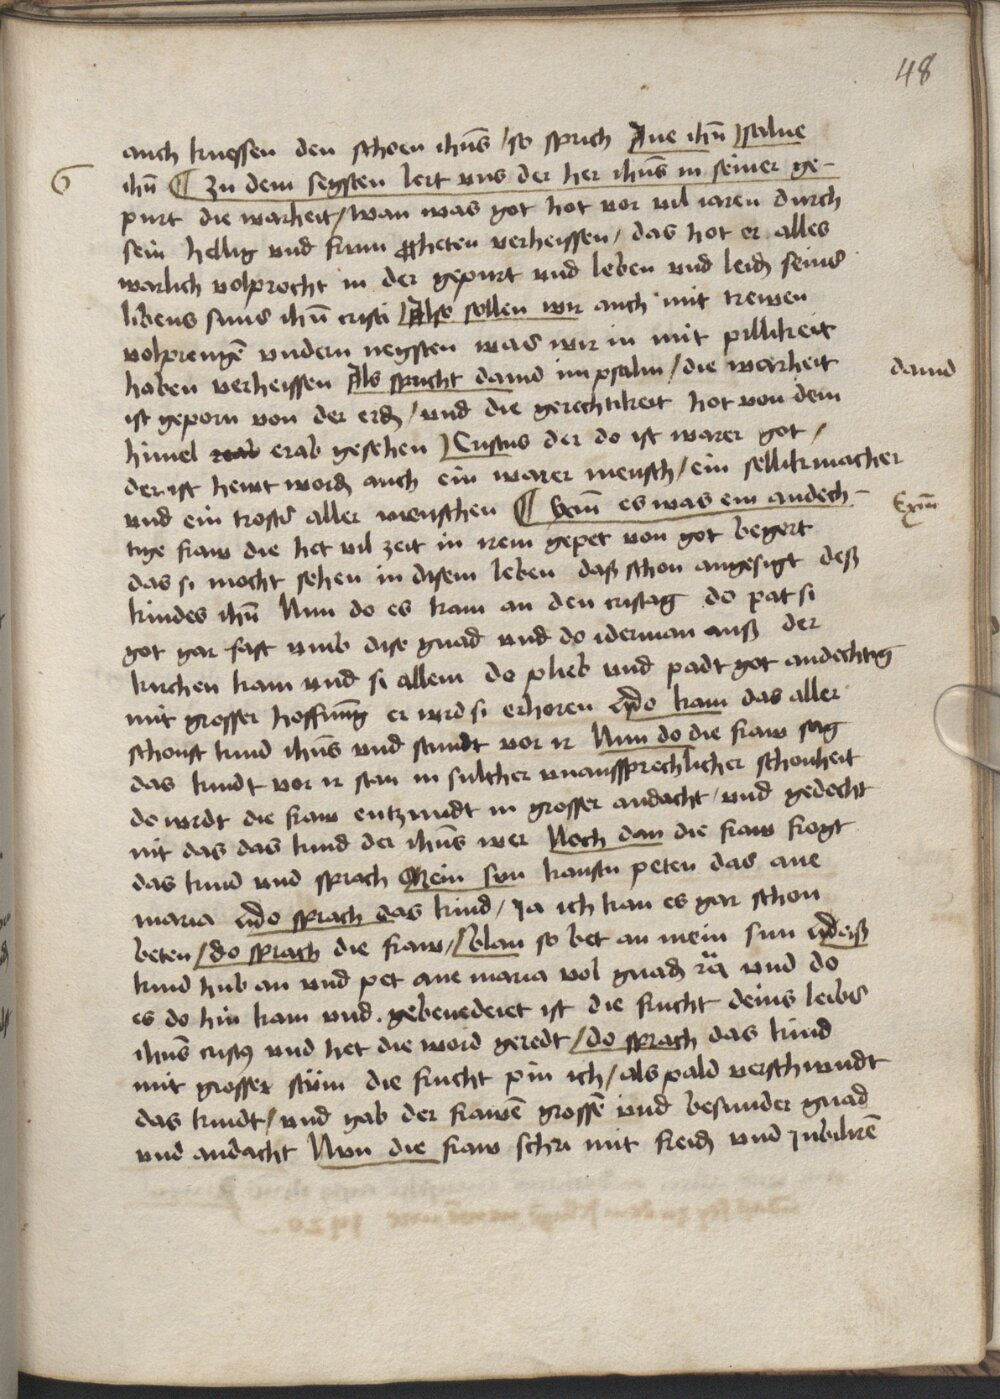 48
auch kuessen den schoen ihūs / so sprich Aue ihū salue
6
ihū ¶ Zu dem segsten lert uns der her ihūs in seiner ge-
purt die warheit / wan was got hot vor vil iaren durch
sein hellig vnd frum ꝓheten verheissen / das hot er alles
warlich volprocht in der gepurt vnd leben vnd leidē seins
libens suns ihū cristi Also sollen wir auch mit trewen
volprengē vnderm negsten was wir in mit pillikeit
haben verheissen Als spricht dauid im psalm / die warheit
dauid
ist geporn von der erdē / vnd die gerechtikeit hot von dem
himel erab gesehen Cristus der do ist warer got /
der ist hewt wordē auch ein warer mensch / ein sellikmacher
vnd ein trosts aller menschen ¶ Exm̄ es was ein andech-
Exm̄
tige fraw die het vil zeit in irem gepet von got begert
das si mocht sehen in disem leben daß schon angesigt deß
kindes ihū Nun do es kam an den cristag do pat si
got gar fast vmb dise gnad vnd do iderman auß der
kirchen kam vnd si allein do plieb vnd padt got andechtig
mit grosser hoffnūg er wrd si erhoren Do kam das aller
schonst kind ihūs vnd stundt vor ir Nun do die fraw sag
das kindt vor ir stan in sulcher vnaussprechlicher schonheit
do wrdt die fraw entzundt in grosser andacht / vnd gedecht
nit das das kind der ihūs wer Noch dan die fraw frogt
das kind vnd sprach Mein sun kanstu peten das aue
maria Do sprach das kind / Ja ich kan es gar schon
beten / do sprach die fraw / Wolan so bet an mein sun Daß
kind hub an vnd pet aue maria vol gnadē rā vnd do
es do hin kam vnd gebenedeiet ist die frucht deins leibs
ihūs cristꝯ vnd het die word geredt / do sprach das kind
mit grosser stüm die frucht pin ich / als pald verschwndt
das kindt / vnd gab der frawē grossē vnd besunder gnad
vnd andacht Nun die fraw schri mit freidē vnd Jubilirē